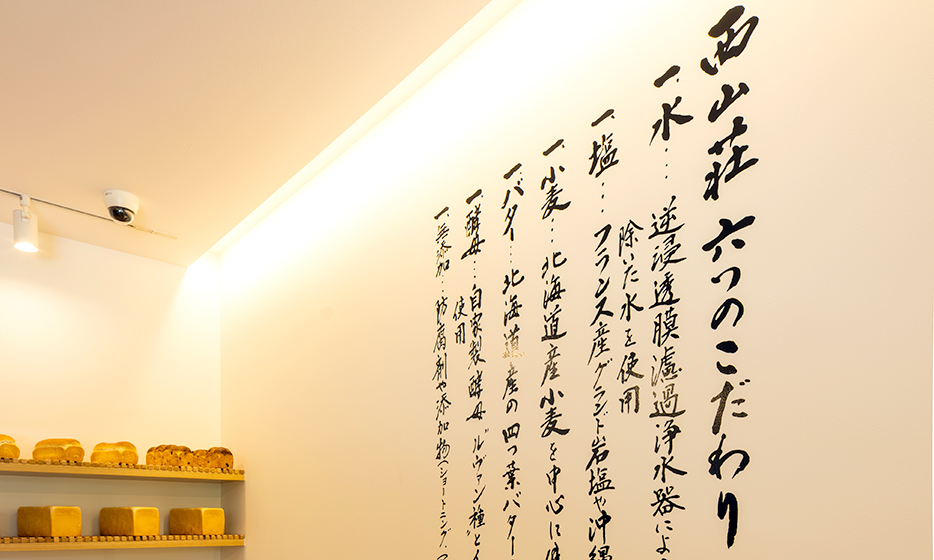 西山荘 六つのこだわり
一.水… 逆浸透膜濾過浄水器によ
除いた水を使用
一.塩… フランス産グランド岩塩や沖縄
一.小麦… 北海道産小麦を中心に
一.バター… 北海道産の四つ葉バター
一.酵母… 自家製酵母 "ルヴァン種"と
使用
一.無添加… 防腐剤や添加物(ショートニング、